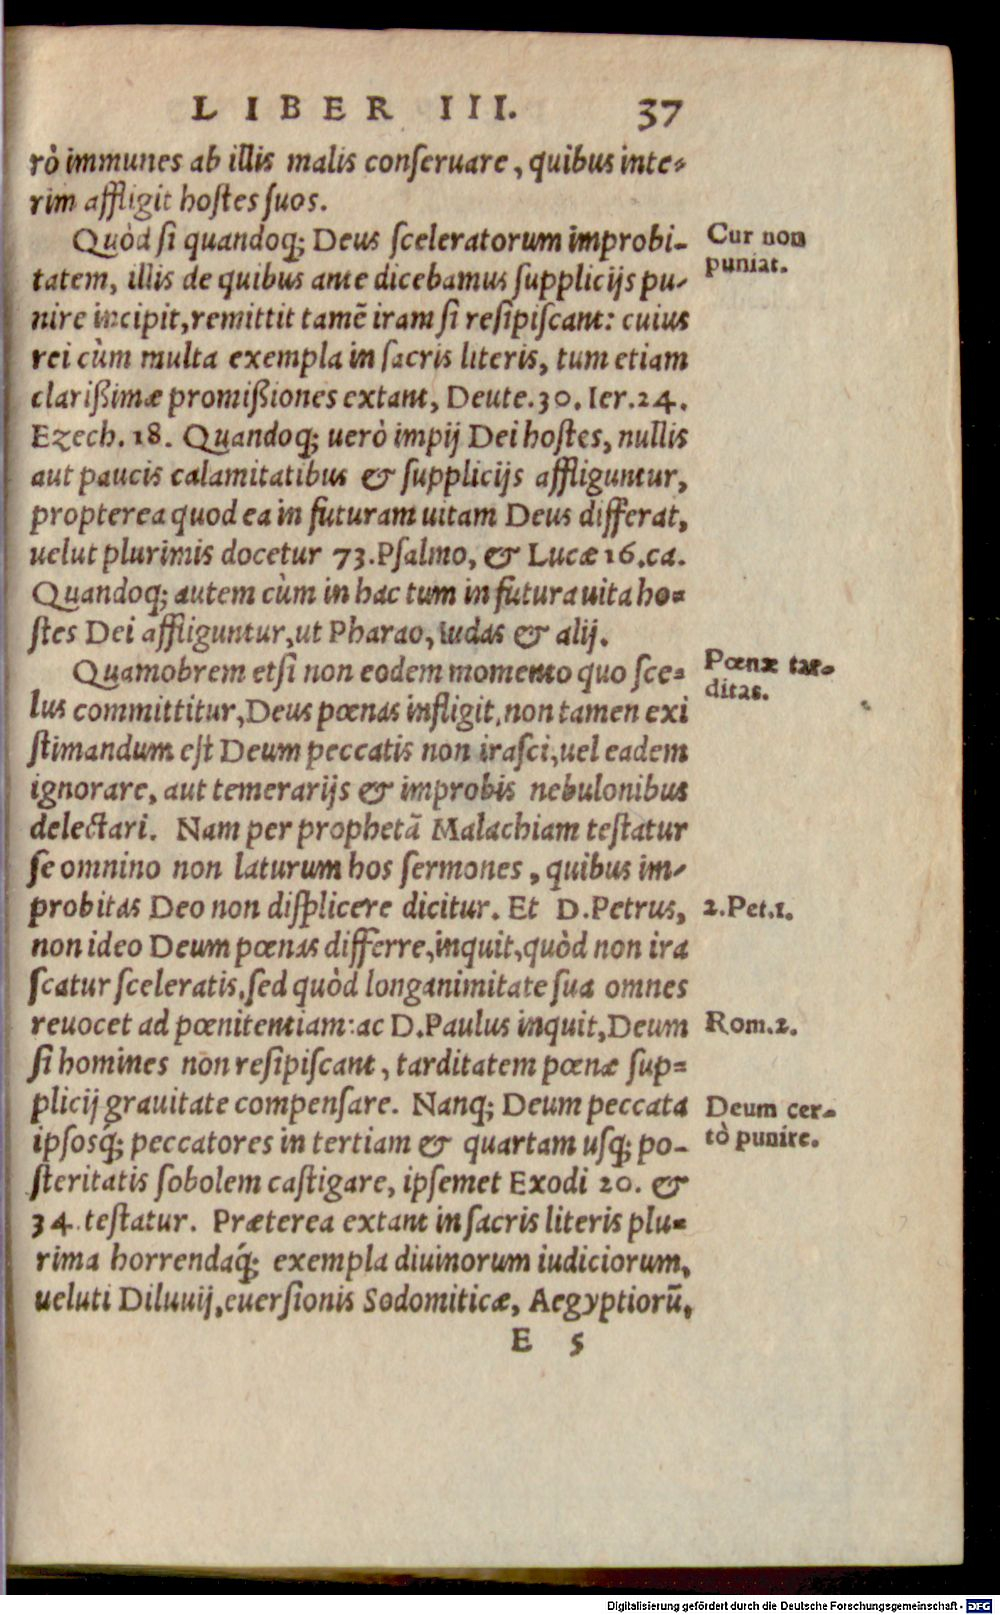 LIBER III. 37
rò immunes ab illis malis conſeruare, quibus inte-
rim affligit hoſtes ſuos.
Quòd ſi quandoq; Deus ſceleratorum improbi-
tatem, illis de quibus ante dicebamus ſupplicijs pu-
nire incipit, remittit tamē iram ſi reſipiſcant: cuius
rei cùm multa exempla in ſacris literis, tum etiam
clarißimæ promißiones extant, Deute.30. Ier.24.
Ezech. 18. Quandoq; uerò impij Dei hoſtes, nullis
aut paucis calamitatibus & ſupplicijs affliguntur,
propterea quod ea in futuram uitam Deus differat,
uelut plurimis docetur 73.Pſalmo, & Lucæ 16.ca.
Quandoq; autem cùm in hac tum in futura uita ho-
ſtes Dei affliguntur, ut Pharao, Iudas & alij.
Quamobrem etſi non eodem momento quo ſce-
lus committitur, Deus pœnas infligit, non tamen exi
ſtimandum eſt Deum peccatis non iraſci, uel eadem
ignorare, aut temerarijs & improbis nebulonibus
delectari. Nam per prophetā Malachiam teſtatur
ſe omnino non laturum hos ſermones, quibus im-
probitas Deo non diſplicere dicitur. Et D.Petrus,
non ideo Deum pœnas differre, inquit, quòd non ira
ſcatur ſceleratis, ſed quòd longanimitate ſua omnes
reuocet ad pœnitentiam: ac D.Paulus inquit, Deum
ſi homines non reſipiſcant, tarditatem pœnæ ſup-
plicij grauitate compenſare. Nanq; Deum peccata
ipſosq́; peccatores in tertiam & quartam uſq; po-
ſteritatis ſobolem caſtigare, ipſemet Exodi 20. &
34. teſtatur. Præterea extant in ſacris literis plu-
rima horrendaq́; exempla diuinorum iudiciorum,
ueluti Diluuij, euerſionis Sodomiticæ, Aegyptiorū,
E 5
Cur non
puniat.
Pœnæ tar-
ditas.
2.Pet.1.
Rom.2.
Deum cer-
tò punire.
Digitalisierung gefördert durch die Deutsche Forschungsgemeinschaft - DFG